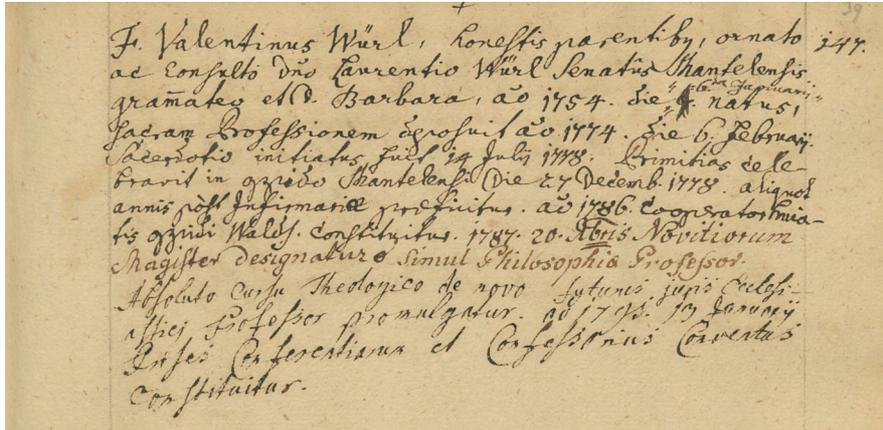 39
+
F. Valentinus Würl, honestis parentibq, ornato 147.
ac Consulto Dno Laurentio Würl Senatus Mantelensis
gram̄ateo et D. Barbara, ao 1754. die 6. Januarii natus,
sacram Professionem deposuit ao 1774. die 6. Februarij.
Sacerdotio initiatus fuit 14 Julij 1778. Primitias cele-
bravit in Mantelensi Die 27 Decemb. 1778. aliquot
annis post Infirmariae praeficitur. ao 1786. Cooperator
tis Walds. Constituitur. 1787. 20. Xbris Novitiorum
Magister Designatur & simul Philosophiae Professor.
Absoluto cursu Theologico de novo futurus juris Ecclesi-
astici Professor promulgatur. ao 1793. 13 January
Praeses Conferentiarum et Confessarius Conventus
Constituitur.